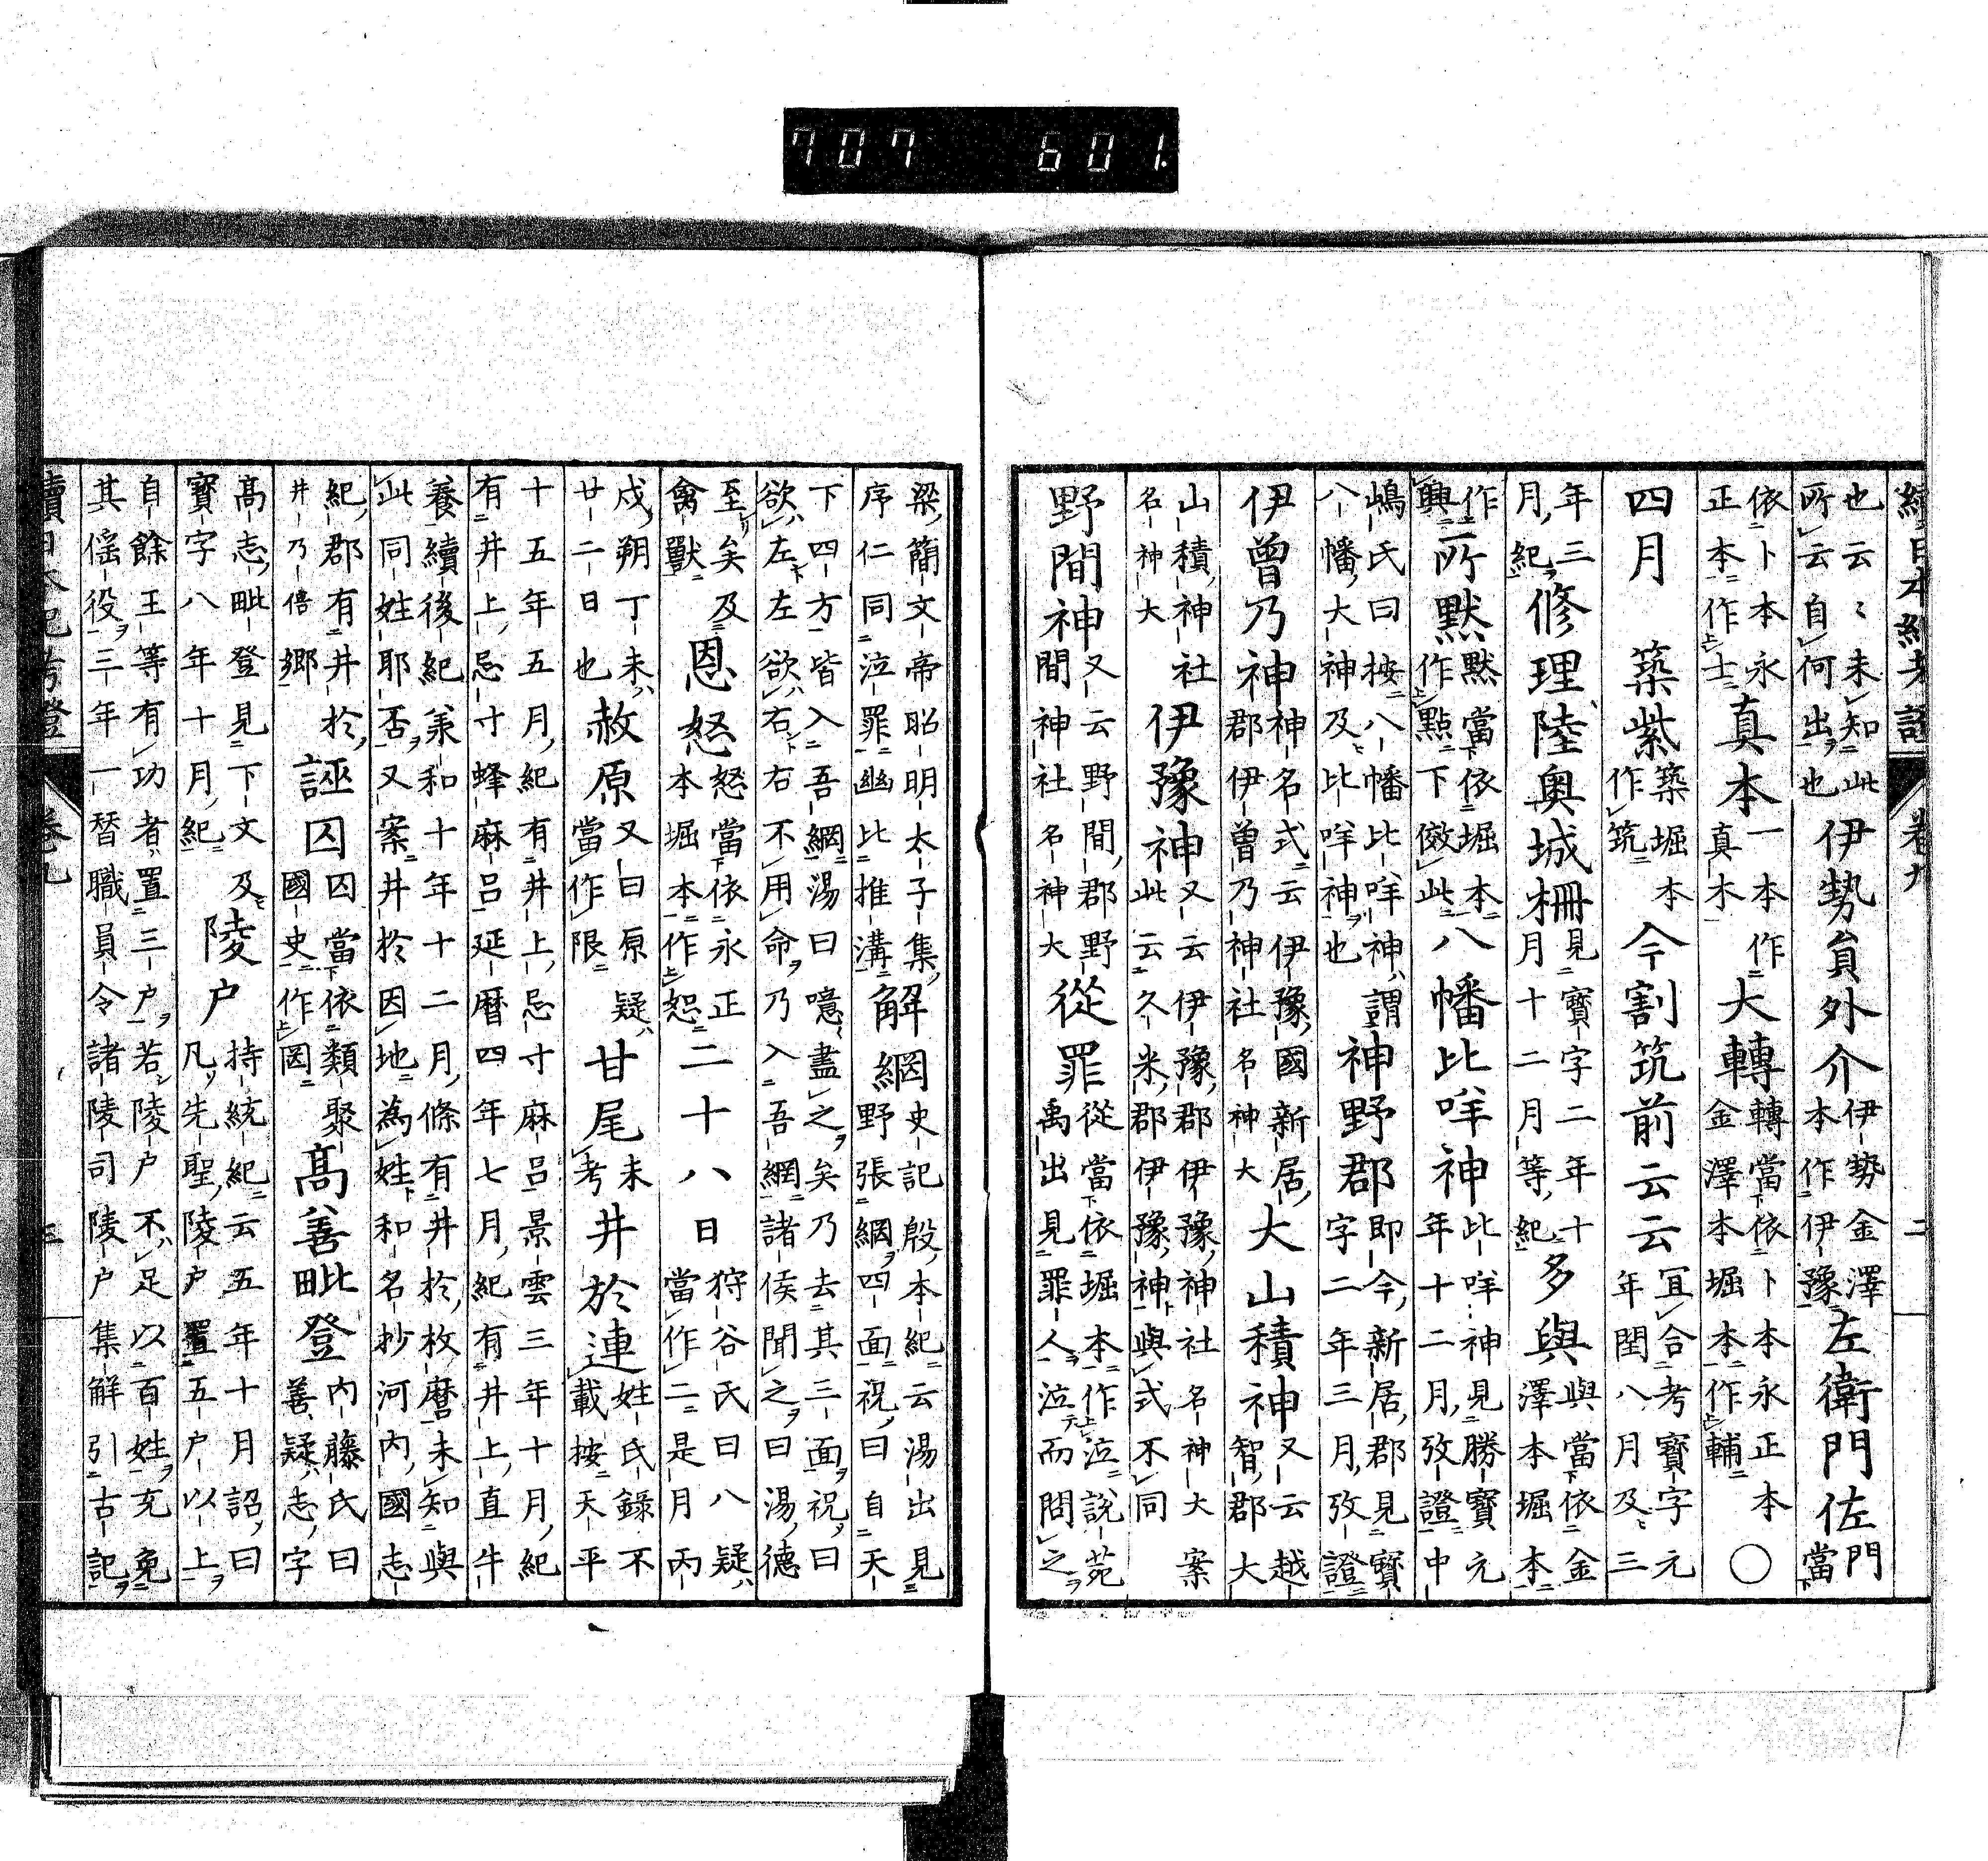 續日本紀考證 卷九 二
也云〻未知此所云自何出也伊勢員外介伊勢金澤本作伊豫左衛門佐門當
依卜本永正本作士真本一本作真木大轉轉當依卜本永正本金澤本堀本作輔○
四月 築紫築堀本作筑今割筑前云云宜合考寶字元年閏八月及三
年三月紀修理陸奥城柵見寶字二年十月十二月等紀多與與當依金澤本堀本
作興所黙黙當依堀本作點下傚此八幡比咩神比咩神見勝寶元年十二月攷證中
嶋氏曰按八幡比咩神謂八幡大神及比咩神也神野郡即今新居郡見寶字二年三月攷證
伊曽乃神神名式云伊豫國新居郡伊曽乃神社名神大大山積神又云越智郡大
山積神社名神大伊豫神又云伊豫郡伊豫神社名神大案此云久米郡伊豫神與式不同
野間神又云野間郡野間神社名神大從罪從當依堀本作泣說苑禹出見罪人泣而問之
梁簡文帝昭明太子集序仁同泣罪幽比推溝解網史記殷本紀云湯出見野張網四面祝曰自天
下四方皆入吾網湯曰噫盡之矣乃去其三面祝曰欲左左欲右右不用命乃入吾網諸侯聞之曰湯德
至矣及禽獸恩怒怒當依永正本堀本作恕二十八日狩谷氏曰八疑當作二是月丙
戍朔丁未廿二日也赦原又曰原疑當作限甘尾未考井於連姓氏錄不載按天平
十五年五月紀有井上忌寸麻呂景雲三年十月紀有井上忌寸蜂麻呂延暦四年七月紀有井上直牛
養續後紀承和十年十二月條有井於枚麿未知與此同姓耶否又案井於因地為姓和名抄河内國志
紀郡有井於井乃倍郷誣囚囚當依類聚國史作罔高善毗登内藤氏曰善疑志字
高志毗登見下文及寶字八年十月紀陵户持統紀云五年十月詔曰凡先聖陵户置五户以上
自餘王等有功者置三户若陵户不足以百姓充免其徭役三年一替職員令諸陵司陵户集解引古記
續日本紀考證 卷九 三
707 601.